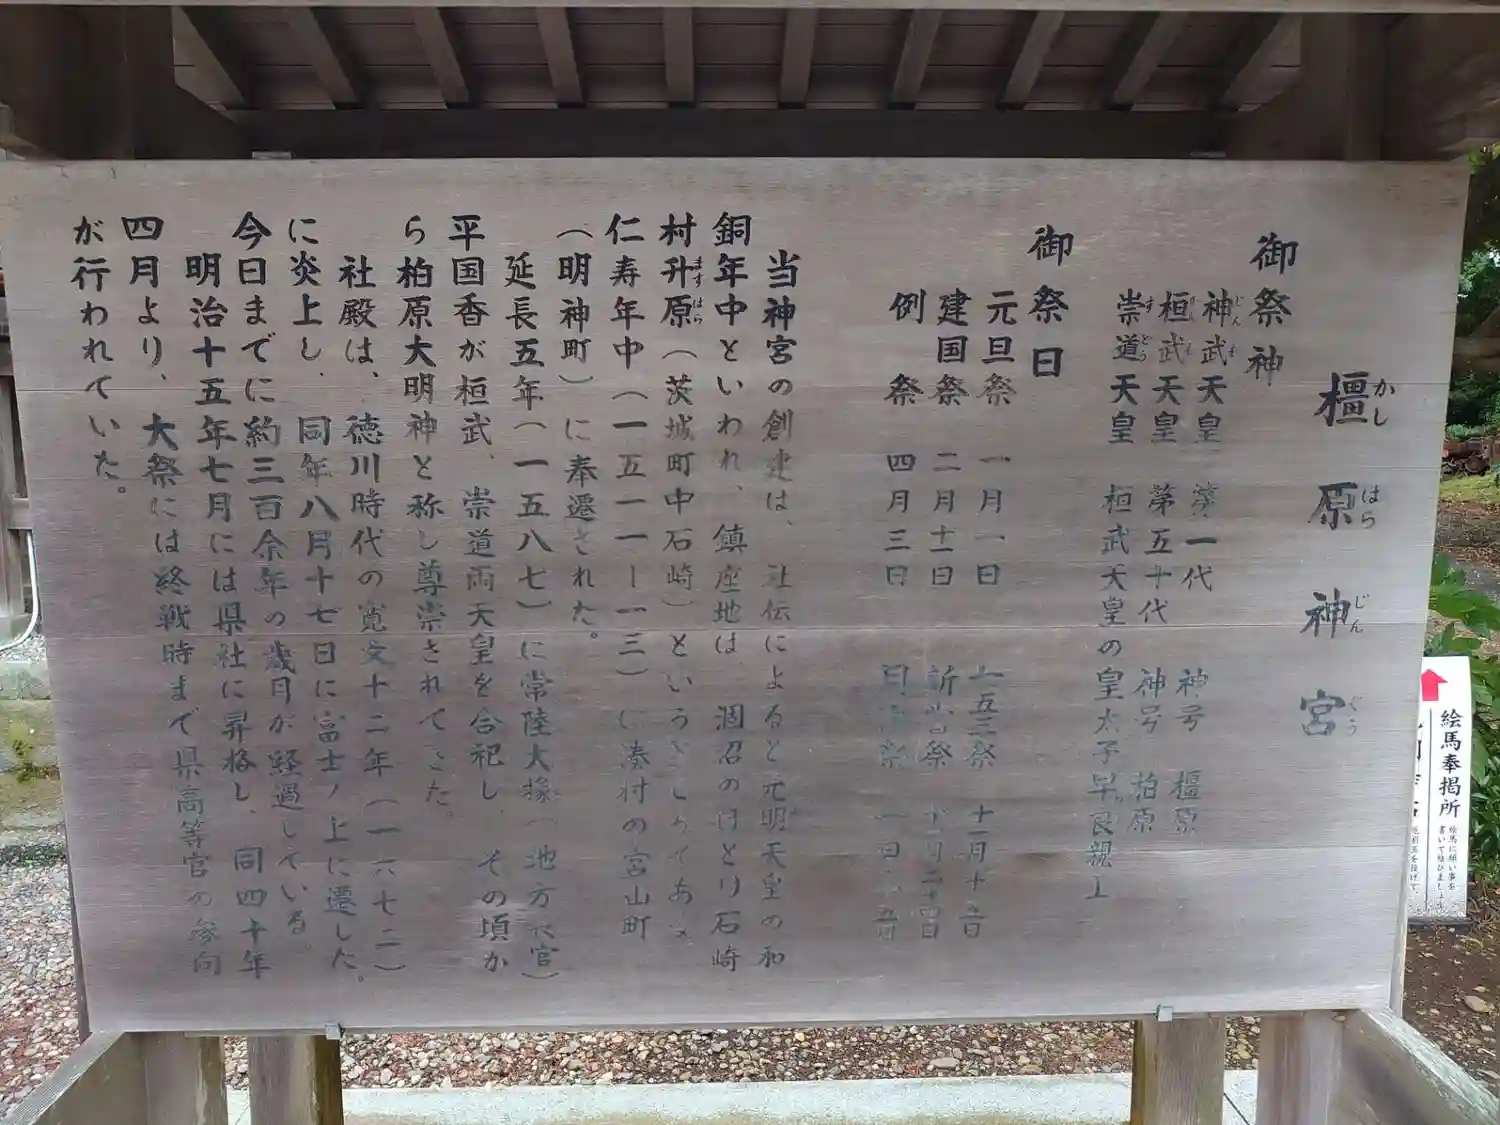 橿原神宮
かしはらじんぐう
御祭神
神武天皇 第一代 神号 橿原
じんむ
桓武天皇 第五十代 神号 柏原
かんむ
崇道天皇 桓武天皇の皇太子早良親王
すどう
御祭日
元旦祭 一月一日 七五三祭 十一月十五日
建国祭 二月十一日 新嘗祭 十一月二十四日
例祭 四月三日 月次祭 一日 十五日
当神宮の創建は、社伝によると元明天皇の和
銅年中といわれ、鎮座地は、涸沼のほとり石崎
村升原（茨城町中石崎）という
ますはら
仁寿年中（一五一一ー一三）に湊村の宮山町
（明神町）に奉遷された。
延長五年（一五八七）に常陸大掾（地方長官）
平国香が桓武、崇道両天皇を合祀し、その頃か
ら柏原大明神と称し尊崇されてきた。
社殿は、徳川時代の寛文十二年（一六七二）
に炎上し、同年八月十七日に富士ノ上に遷した。
今日までに約三百余年の歳月が経過している。
明治十五年七月には県社に昇格し、同四十年
四月より、大祭には終戦時まで県高等官の参向
が行われていた。
絵馬奉掲所
絵馬に願い事を
書いて結びましょう